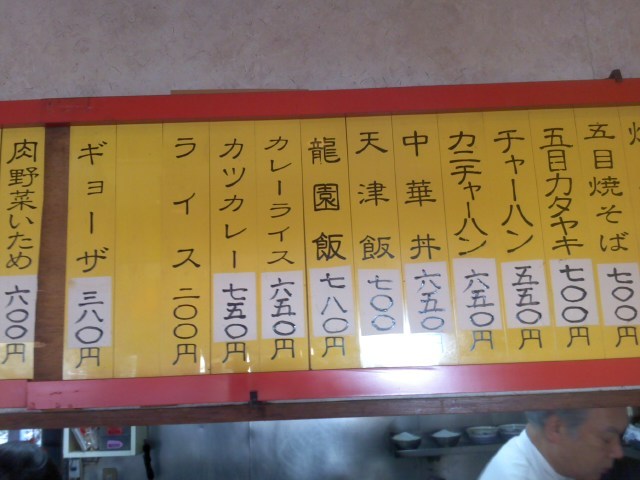 五目焼そば 七〇〇円
五目カタヤキ 七〇〇円
チャーハン 五五〇円
カニチャーハン 六五〇円
中華丼 六五〇円
天津飯 七〇〇円
龍園飯 七八〇円
カレーライス 六五〇円
カツカレー 七五〇円
ライス 二〇〇円
ギョーザ 三八〇円
肉野菜いため 六〇〇円